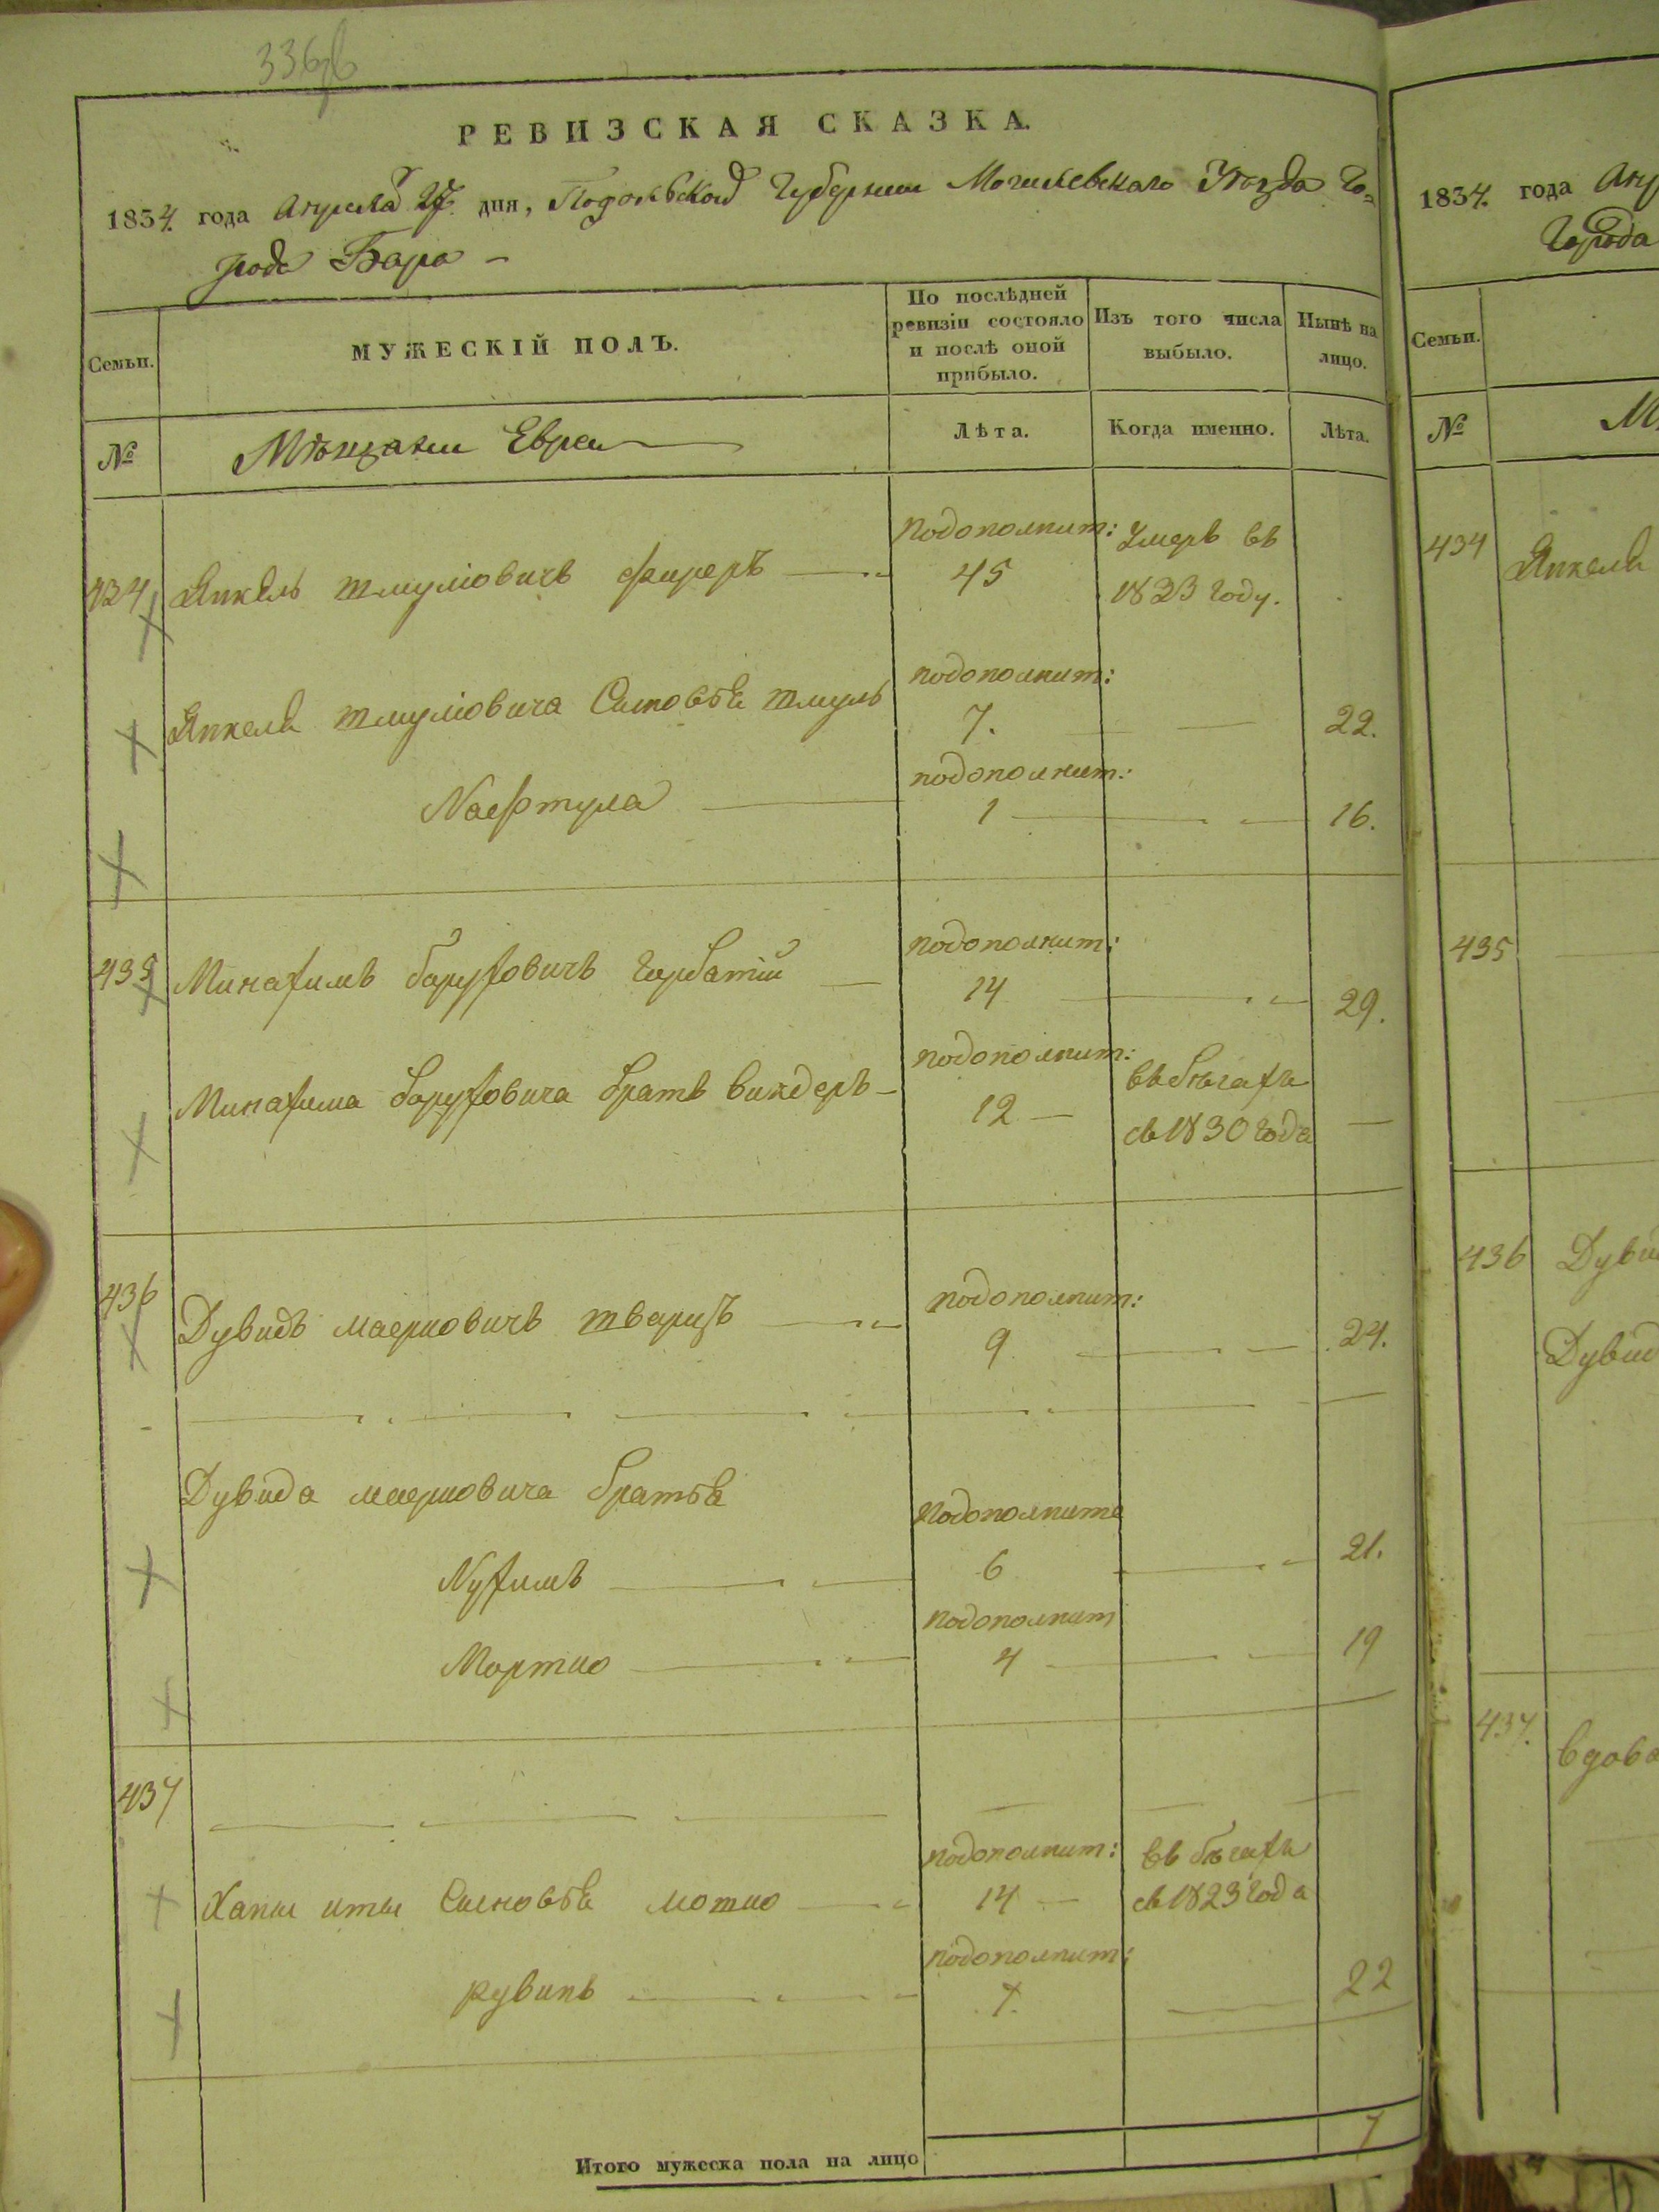 336
РЕВИЗСКАЯ СКАЗКА.
1834. года Апреля 27. дня, Подольской Губернии Могилевскаго Уезда Го=
рода Бара –
Семьи.
МУЖЕСКІЙ ПОЛЪ.
По послѣдней ревизіи состояло и послѣ оной прибыло.
Изъ того числа выбыло.
Нынѣ на лицо.
№
Мѣщани Евреи
Лѣта.
Когда именно.
Лѣта.
подополнит: Умеръ въ
434 Янкель Шмуліовичъ Фиреръ 45 1823 году.
подополнит:
Янкеля Шмуліовича Сыновья Шмуль 7. 22.
подополнит:
Нафтула 1 16.
подополнит:
435 Минахимъ Баруховичъ Горбатій 14 29.
подополнит: въ бѣгахъ
Минахима Баруховича братъ Виндеръ 12 – съ 1830 года –
436 подополнит:
Дувидъ маеріовичъ Шварцъ 9 24.
Дувида маеріовича братья
подополнит
Нухимъ 6 21.
подополнит
Мортко 4 19
437
подополнит: въ бѣгахъ
Ханы иты Сыновья мошко 14 – съ 1823 года
подополнит:
рувинъ 7. 22
7
Итого мужеска пола на лицо
1834. года Апр
Города
Семьи.
№ М
434 Янкеля
435
436 Дуви
Дувид
437. вдова